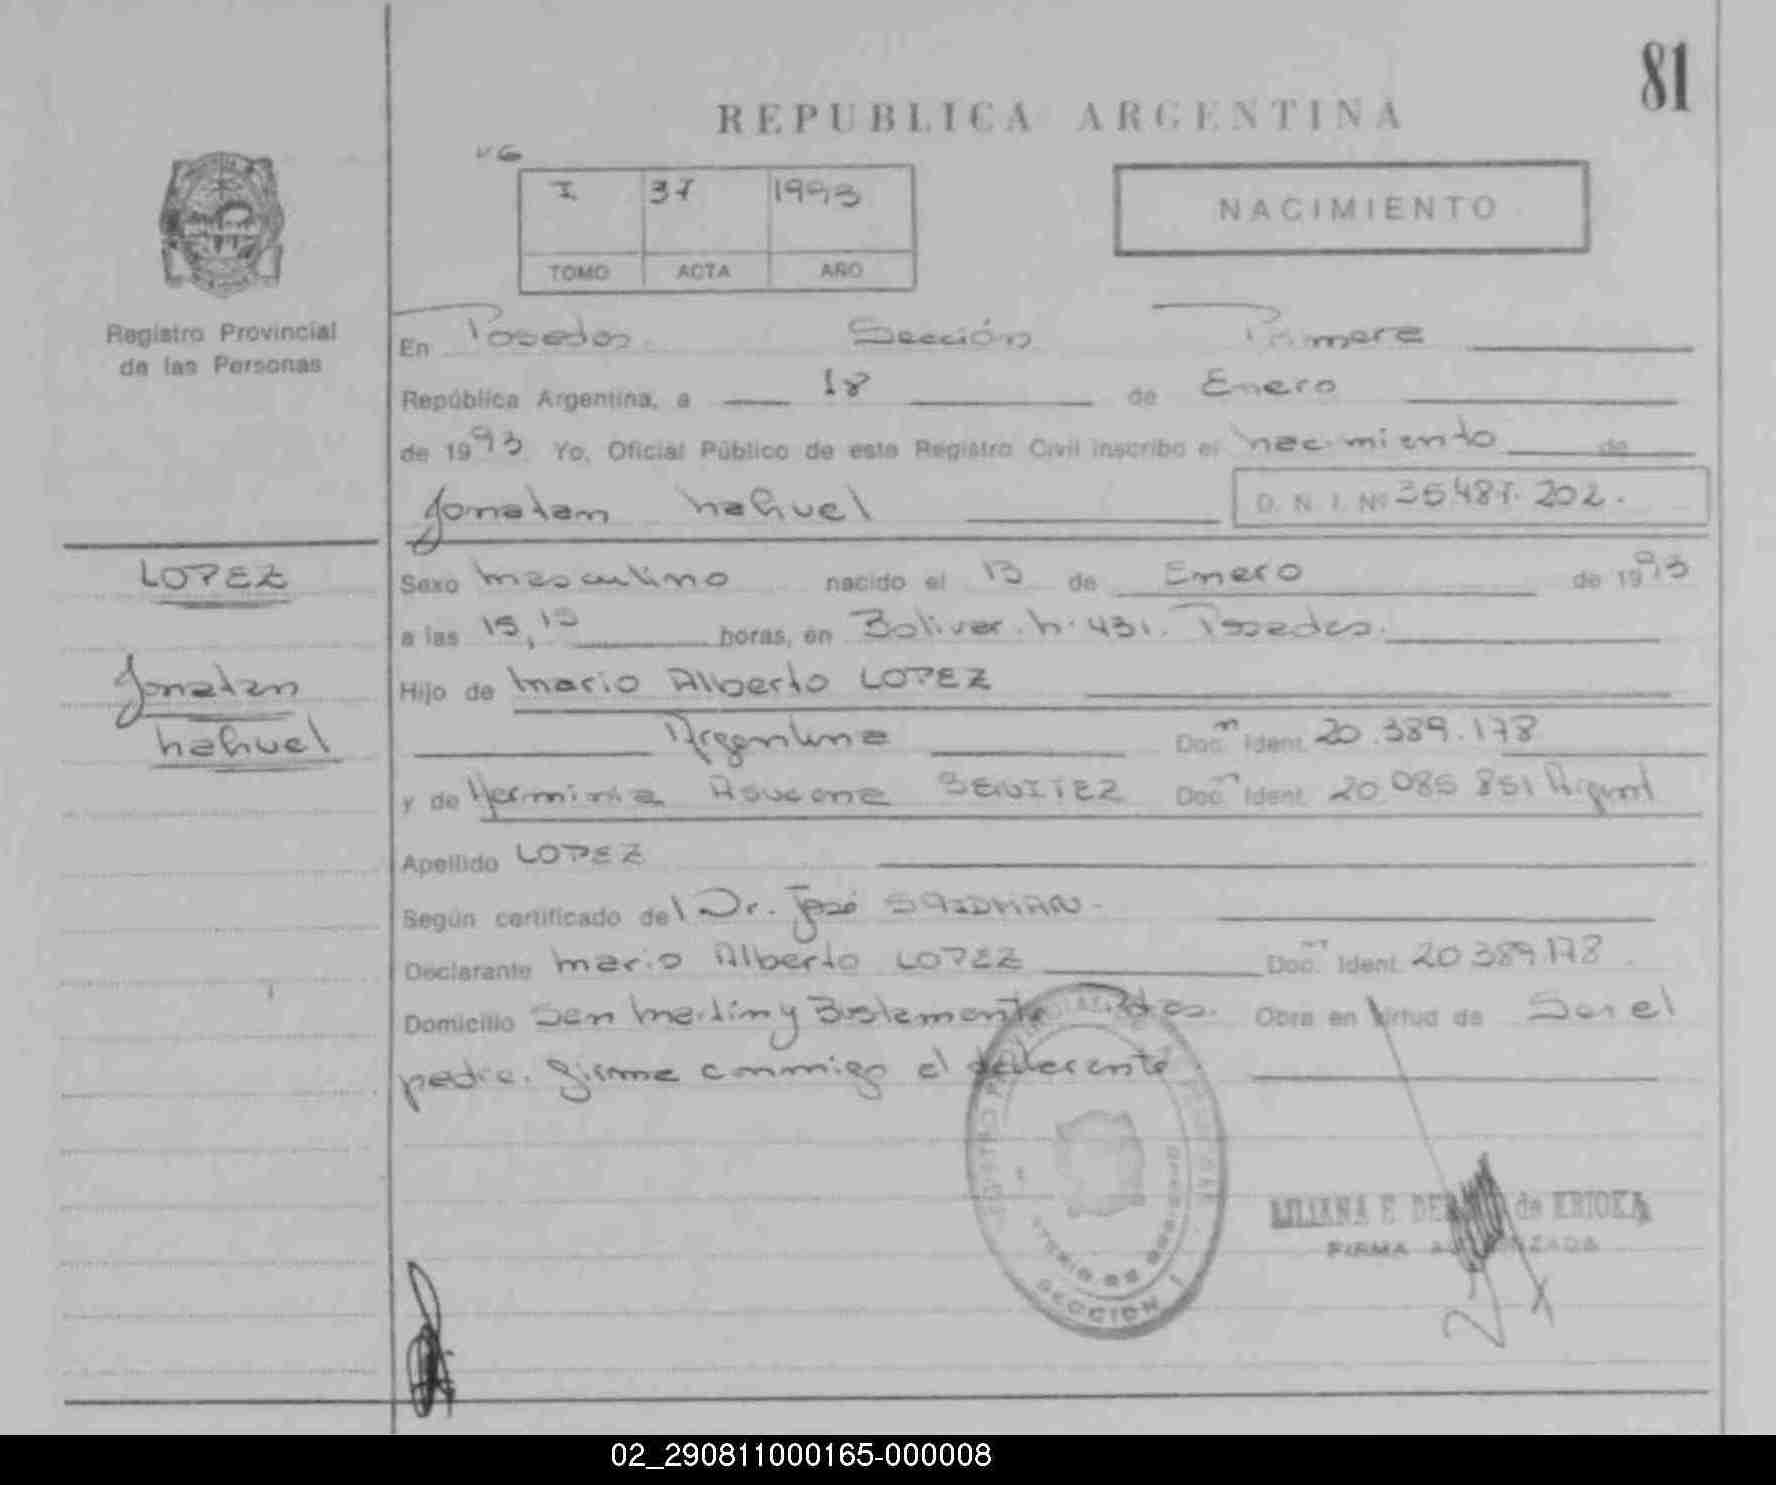 81
REPUBLICA ARGENTINA
I 37 1993
TOMO ACTA AÑO
NACIMIENTO
Registro Provincial
de las Personas
En Posadas Sección Primera
República Argentina, a 18 de Enero
de 1993 Yo, Oficial Público de este Registro Civil inscribo el nacimiento de
Jonatan nahuel D. N. I. Nº
LOPEZ
Jonatan
nahuel
Sexo masculino nacido el 13 de Enero de 1993
a las 15,15 horas, en Bolivar. n. 431. Posadas.
Hijo de mario Alberto LOPEZ
Argentina Doc. Ident. 20.389.178
y de Herminia Asucena BENITEZ Doc. Ident. 20.085 851 Argent
Apellido LOPEZ
Según certificado del Dr. José
Declarante mario Alberto LOPEZ Doc. Ident. 20389178
Domicilio San martin y Bustamante Pdas. Obra en virtud de Ser el
padre. firma conmigo el
SECCION 1
LILIANA E de ERIOKA
FIRMA AUTORIZADA
02_290811000165-000008